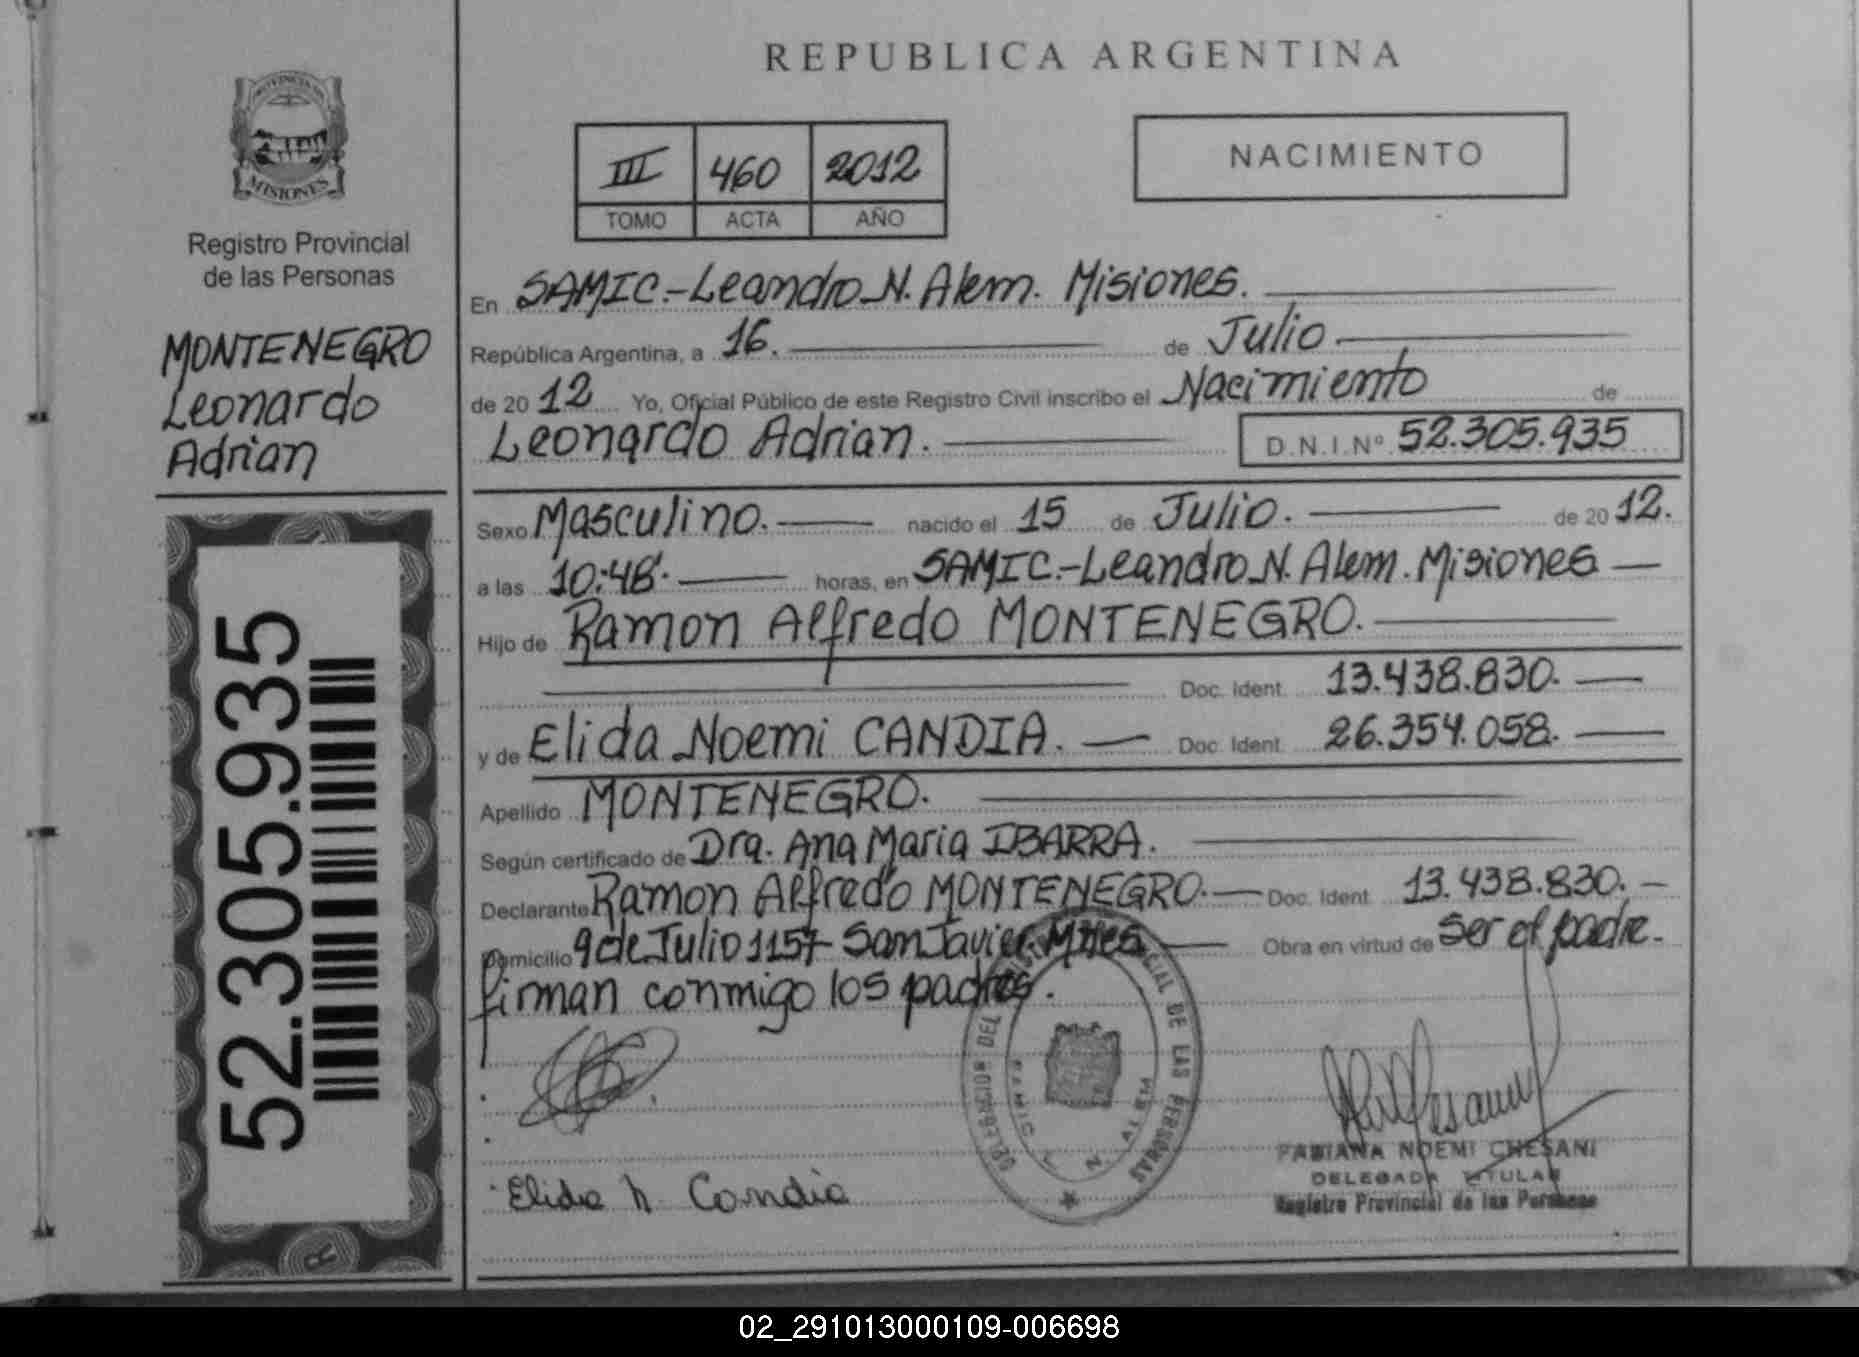 REPUBLICA ARGENTINA
PROVINCIA DE MISIONES
Registro Provincial
de las Personas
MONTENEGRO
Leonardo
Adrian
52.305.935
R
III 460 2012
TOMO ACTA AÑO
NACIMIENTO
En SAMIC.-Leandro N. Alem. Misiones.
República Argentina, a 16. de Julio.
de 2012 Yo, Oficial Público de este Registro Civil inscribo el Nacimiento de
Leonardo Adrian. D.N.I.Nº 52.305.935
Sexo Masculino. nacido el 15 de Julio. de 2012.
a las 10:48. horas, en SAMIC.-Leandro N. Alem. Misiones
Hijo de Ramon Alfredo MONTENEGRO.
Doc. Ident. 13.438.830.
y de Elida Noemi CANDIA. Doc. Ident. 26.354.058.
Apellido MONTENEGRO.
Según certificado de Dra. Ana Maria IBARRA.
Declarante Ramon Alfredo MONTENEGRO. Doc. Ident. 13.438.830.
Domicilio 9 de Julio 1157 San Javier. Mnes Obra en virtud de ser el padre.
firman conmigo los padres.
DELEGACION DEL REGISTRO PROVINCIAL DE LAS PERSONAS
SAMIC L. N. ALEM
Elida N. Candia
FABIANA NOEMI CHESANI
DELEGADA TITULAR
Registro Provincial de las Personas
02_291013000109-006698